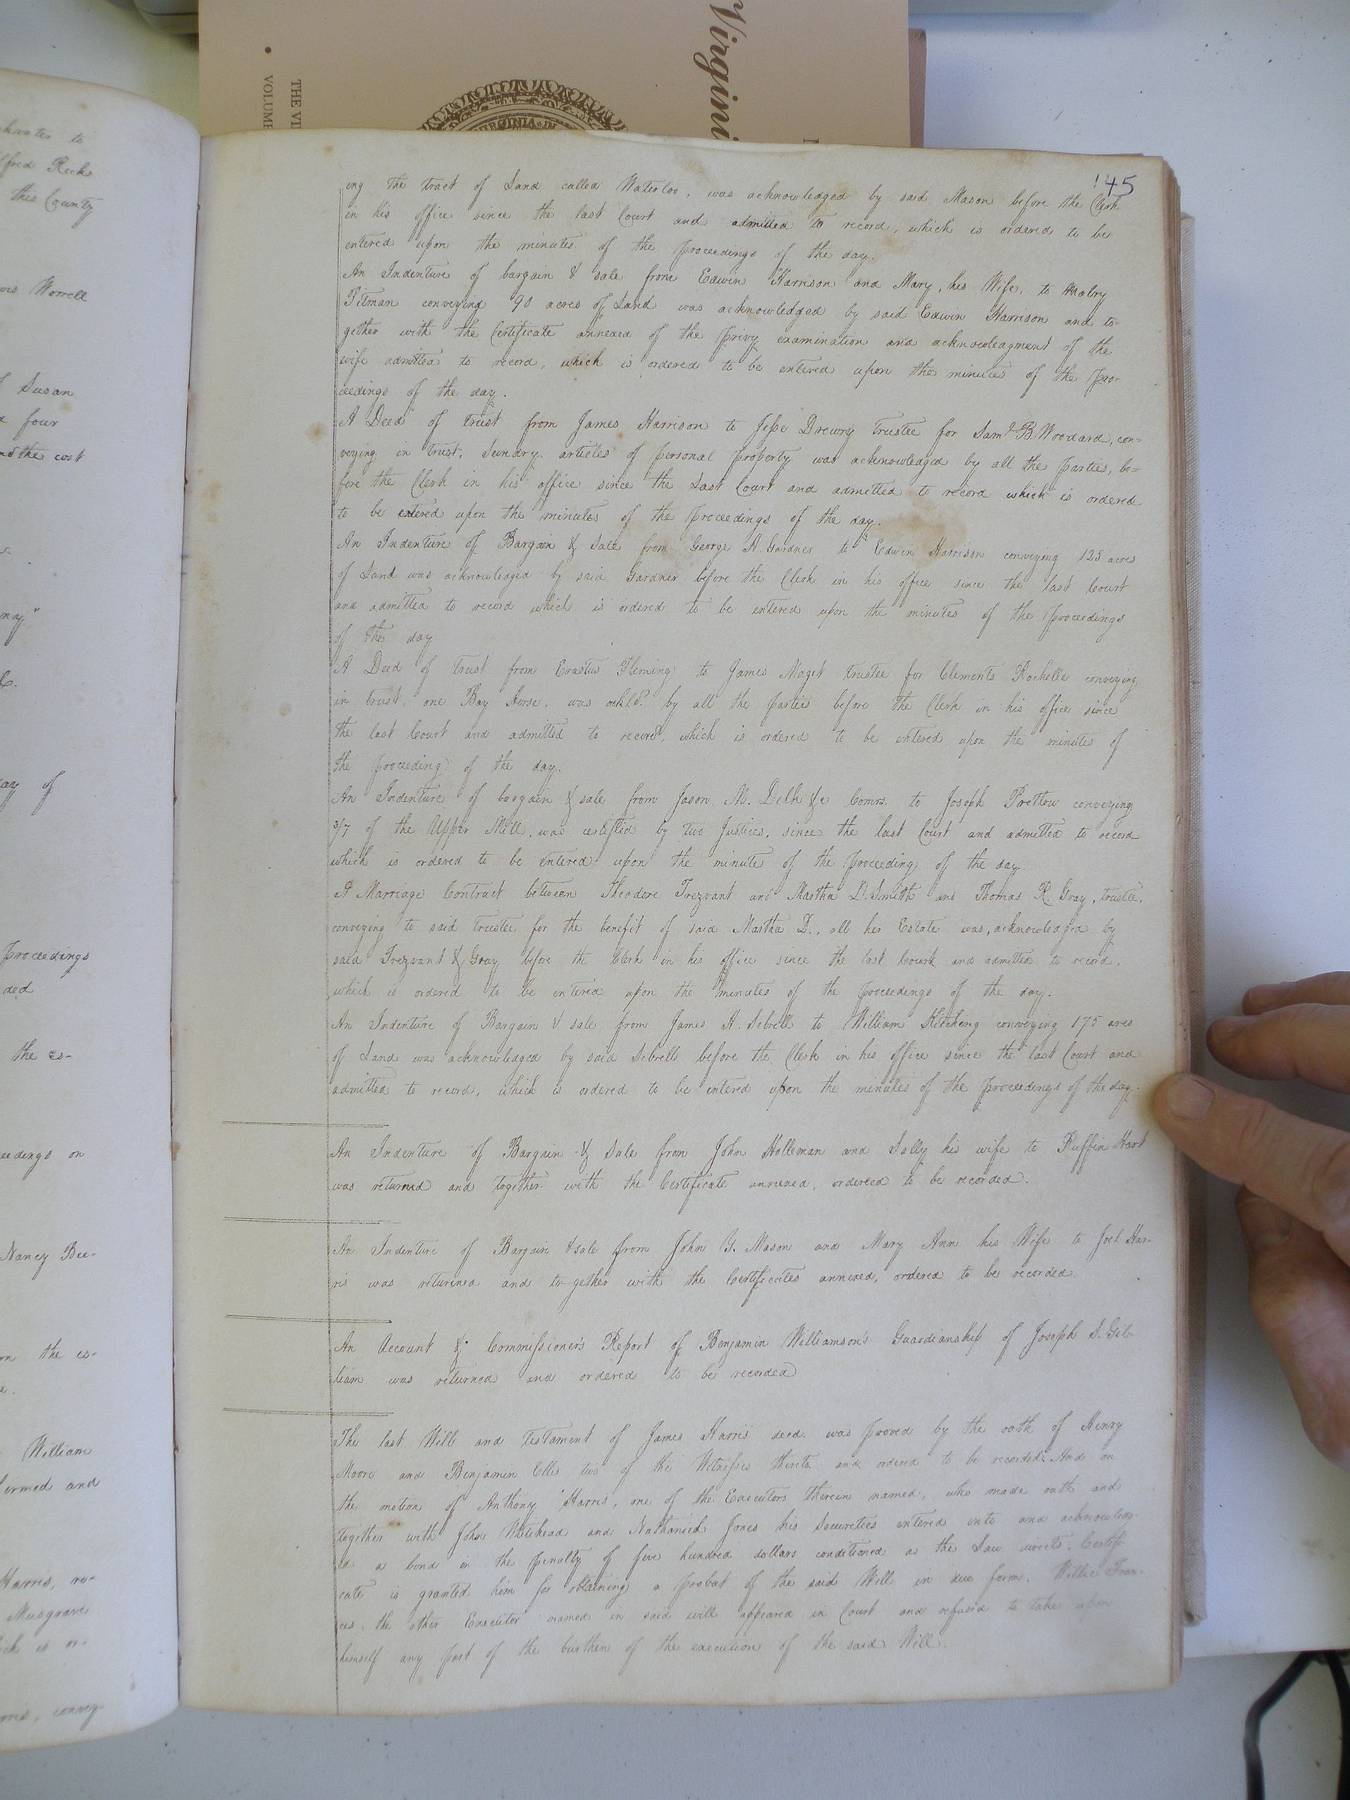 Virgini
THE VI
VOLUME
VIRGINIA
145
ing the tract of Land called Waterloo, was acknowledged by said Mason before the Clerk
in his office since the last Court and admitted to record, which is ordered to be
entered upon the minutes of the proceedings of the day.
An Indenture of bargain & sale from Edwin Harrison and Mary, his Wife, to Mabry
Pitman conveying 90 acres of Land was acknowledged by said Edwin Harrison and to-
gether with the Certificate annexed of the privy examination and acknowledgment of the
wife admitted to record, which is ordered to be entered upon the minutes of the pro-
ceedings of the day.
A Deed of trust from James Harrison to Jesse Drewry Trustee for Saml. B. Woodard, con-
veying in trust, Sundry articles of personal property was acknowledged by all the parties, be-
fore the Clerk in his office since the Last Court and admitted to record which is ordered
to be entered upon the minutes of the proceedings of the day.
An Indenture of Bargain & Sale from George H. Gardner to Edwin Harrison conveying 125 acres
of Land was acknowledged by said Gardner before the Clerk in his office since the last Court
and admitted to record which is ordered to be entered upon the minutes of the proceedings
of the day
A Deed of trust from Erastus Fleming to James Maget trustee for Clements Rochelle conveying
in trust, one Bay Horse, was ackld. by all the parties before the Clerk in his office since
the last Court and admitted to record, which is ordered to be entered upon the minutes of
the proceeding of the day.
An Indenture of bargain & sale from Jason M. Delk &c Comrs. to Joseph Pretlow conveying
3/7 of the Upper Mill, was certified by two Justices, since the last Court and admitted to record
which is ordered to be entered upon the minute of the proceeding of the day
A Marriage Contract between Theodore Trezvant and Martha D. Smith and Thomas R. Gray, trustee,
conveying to said trustee for the benefit of said Martha D., all her Estate was, acknowledged by
said Trezvant & Gray before the Clerk in his office since the last Court and admitted to record,
which is ordered to be entered upon the minutes of the proceedings of the day.
An Indenture of Bargain & sale from James H. Sebrell to William Kitching conveying 175 acres
of Land was acknowledged by said Sebrell before the Clerk in his office since the last Court and
admitted to record, which is ordered to be entered upon the minutes of the proceedings of the day.
An Indenture of Bargain & Sale from John Holleman and Sally his wife to Ruffin Hart
was returned and together with the Certificate annexed, ordered to be recorded.
An Indenture of Bargain & sale from John G. Mason and Mary Ann his Wife to Joel Har-
ris was returned and to-gether with the Certificates annexed, ordered to be recorded
An Account & Commissioner's Report of Benjamin Williamson's Guardianship of Joseph S. Gil-
liam was returned and ordered to be recorded
The last Will and testament of James Harris decd. was proved by the oath of Henry
Moore and Benjamin Ellis two of the Witnesses thereto and ordered to be recorded. And on
the motion of Anthony Harris, one of the Executors therein named, who made oath and
together with John Whitehead and Nathaniel Jones his Securities entered into and acknowledg-
ed a bond in the penalty of five hundred dollars conditioned as the Law directs. Certifi-
cate is granted him for obtaining a probat of the said Will in due form. Willie Fran-
ces, the other Executor named in said will appeared in Court and refused to take upon
himself any part of the burthen of the execution of the said Will.